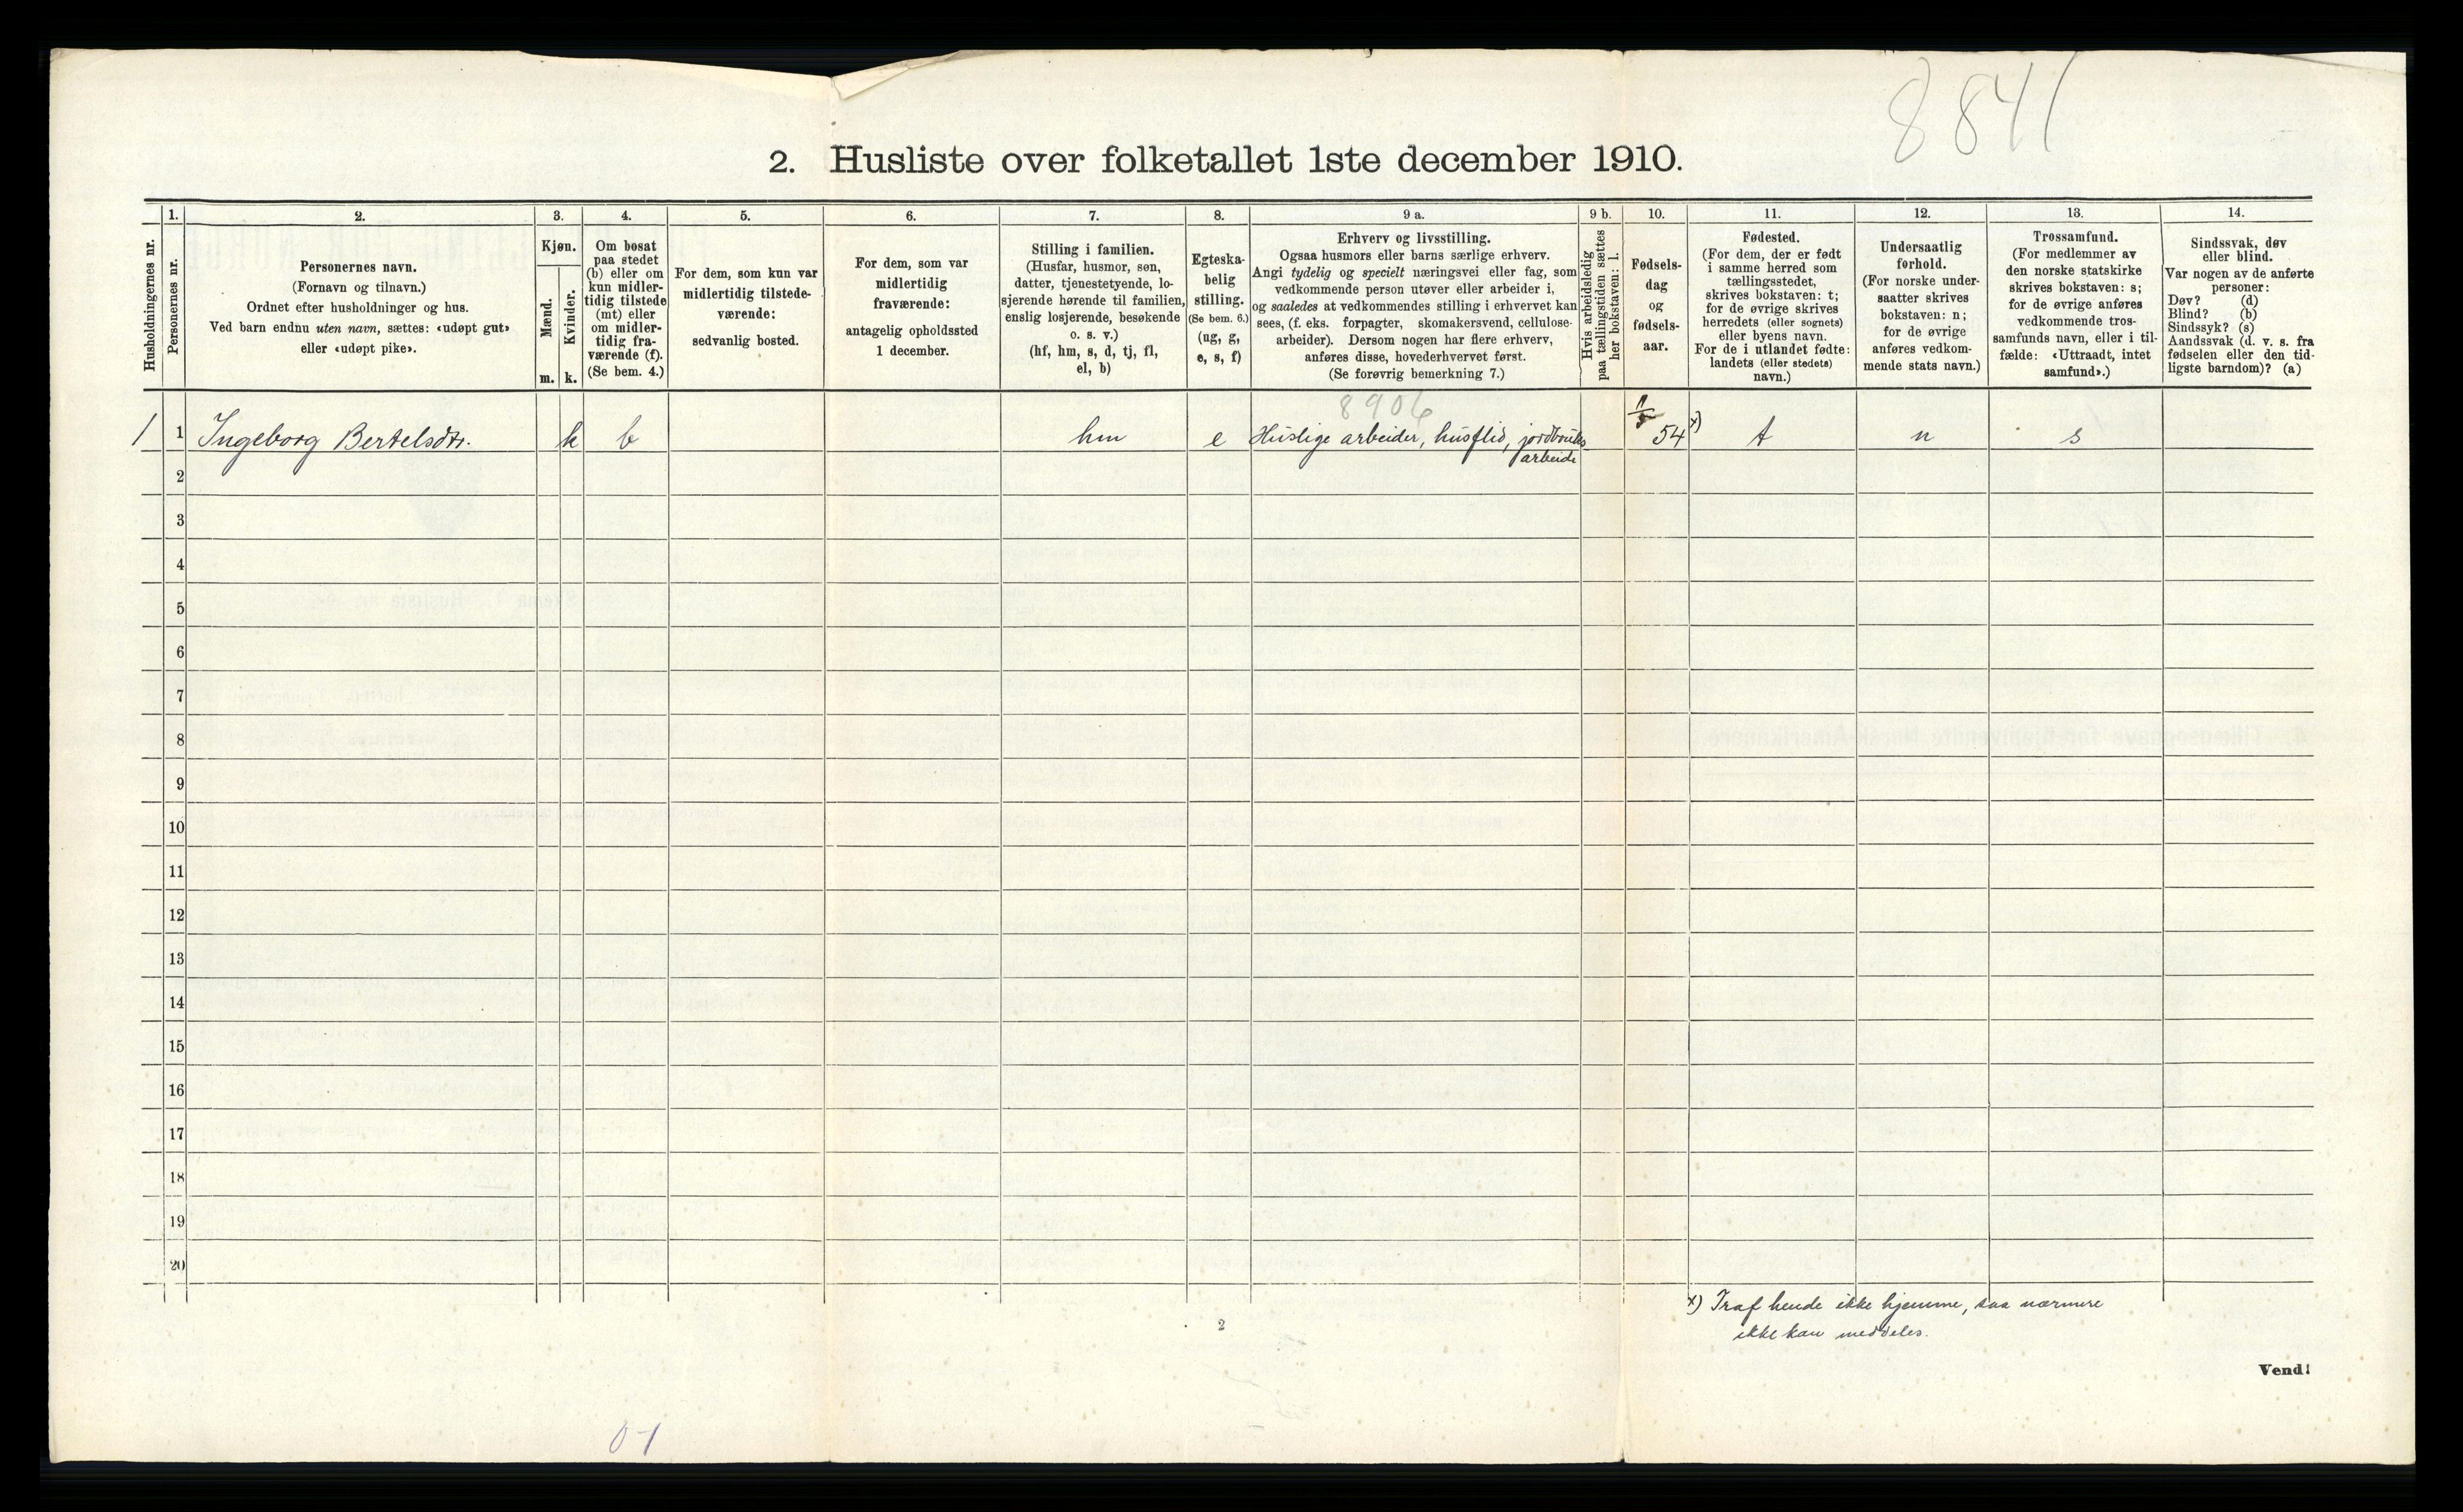 8841
2. Husliste over folketallet 1ste december 1910.
Husholdningernes nr.
1.
Personernes nr.
2.
Personernes navn.
(Fornavn og tilnavn.)
Ordnet efter husholdninger og hus.
Ved barn endnu uten navn, sættes: «udøpt gut»
eller «udøpt pike».
3.
Kjøn.
Mænd.
Kvinder.
m. k.
4.
Om bosat
paa stedet
(b) eller om
kun midler-
tidig tilstede
(mt) eller
om midler-
tidig fra-
værende (f).
(Se bem. 4.)
5.
For dem, som kun var
midlertidig tilstede-
værende:
sedvanlig bosted.
6.
For dem, som var
midlertidig
fraværende:
antagelig opholdssted
1 december.
7.
Stilling i familien.
(Husfar, husmor, søn,
datter, tjenestetyende, lo-
sjerende hørende til familien,
enslig losjerende, besøkende
o. s. v.)
(hf, hm, s, d, tj, fl,
el, b)
8.
Egteska-
belig
stilling.
(Se bem. 6.)
(ug, g,
e, s, f)
9 a.
Erhverv og livsstilling.
Ogsaa husmors eller barns særlige erhverv.
Angi tydelig og specielt næringsvei eller fag, som
vedkommende person utøver eller arbeider i,
og saaledes at vedkommendes stilling i erhvervet kan
sees, (f. eks. forpagter, skomakersvend, cellulose-
arbeider). Dersom nogen har flere erhverv,
anføres disse, hovederhvervet først.
(Se forøvrig bemerkning 7.)
9 b.
Hvis arbeidsledig
paa tællingstiden sættes
her bokstaven: l.
10.
Fødsels-
dag
og
fødsels-
aar.
11.
Fødested.
(For dem, der er født
i samme herred som
tællingsstedet,
skrives bokstaven: t;
for de øvrige skrives
herredets (eller sognets)
eller byens navn.
For de i utlandet fødte:
landets (eller stedets)
navn.)
12.
Undersaatlig
forhold.
(For norske under-
saatter skrives
bokstaven: n;
for de øvrige
anføres vedkom-
mende stats navn.)
13.
Trossamfund.
(For medlemmer av
den norske statskirke
skrives bokstaven: s;
for de øvrige anføres
vedkommende tros-
samfunds navn, eller i til-
fælde: «Uttraadt, intet
samfund».)
14.
Sindssvak, døv
eller blind.
Var nogen av de anførte
personer:
Døv? (d)
Blind? (b)
Sindssyk? (s)
Aandssvak (d. v. s. fra
fødselen eller den tid-
ligste barndom)? (a)
8906
1 1 Ingeborg Bertelsdtr. k b hm e Huslige arbeider, husflid, jordbruks 54 x) t n s
arbeide
2
3
4
5
6
7
8
9
10
11
12
13
14
15
16
17
18
19
20
x) Traf hende ikke hjemme, saa nærmere
ikke kan meddeles.
2
Vend!
01